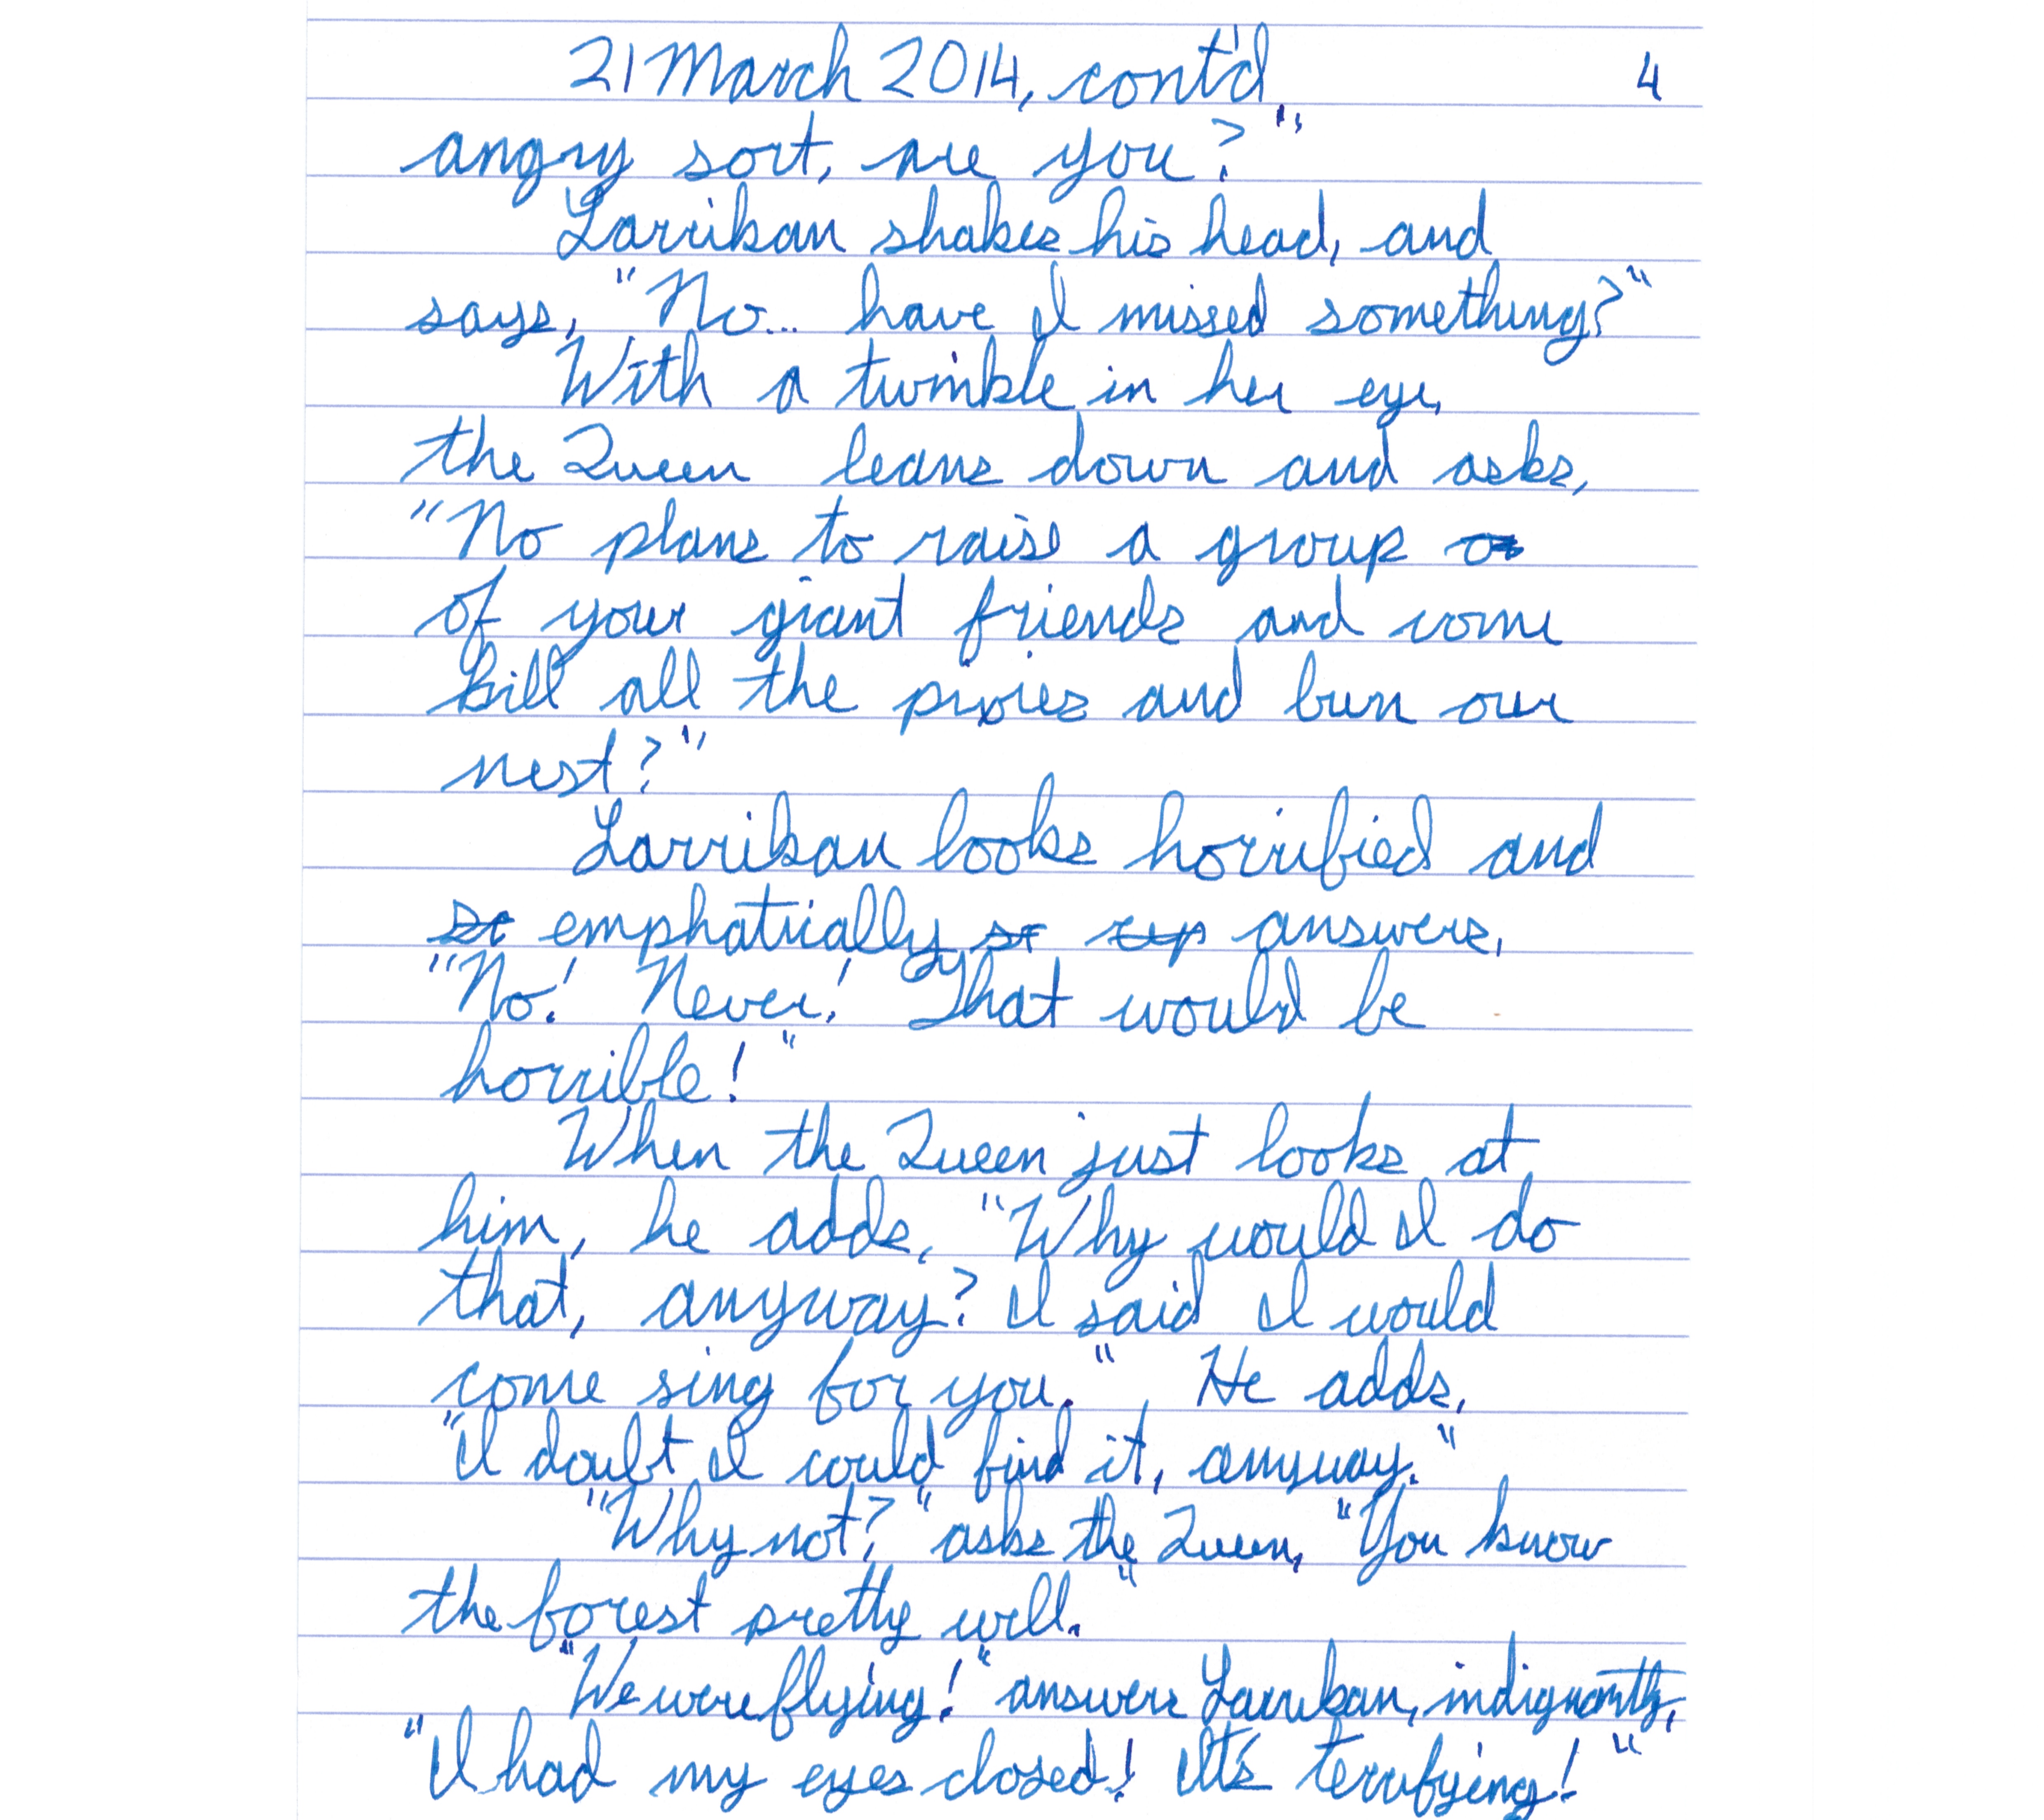 21 March 2014, cont'd. 4
angry sort, are you?"
Larrikan shakes his head, and
says, "No... have I missed something?"
With a twinkle in her eye,
the Queen leans down and asks,
"No plans to raise a group o
of your giant friends and come
kill all the pixies and burn our
nest?"
Larrikan looks horrified and
st emphatically st rep answers,
"No! Never! That would be
horrible!"
When the Queen just looks at
him, he adds, "Why would I do
that, anyway? I said I would
come sing for you." He adds,
"I doubt I could find it, anyway."
"Why not?" asks the Queen, "You know
the forest pretty well."
"We were flying!" answers Larrikan, indignantly,
"I had my eyes closed! It's terrifying!"